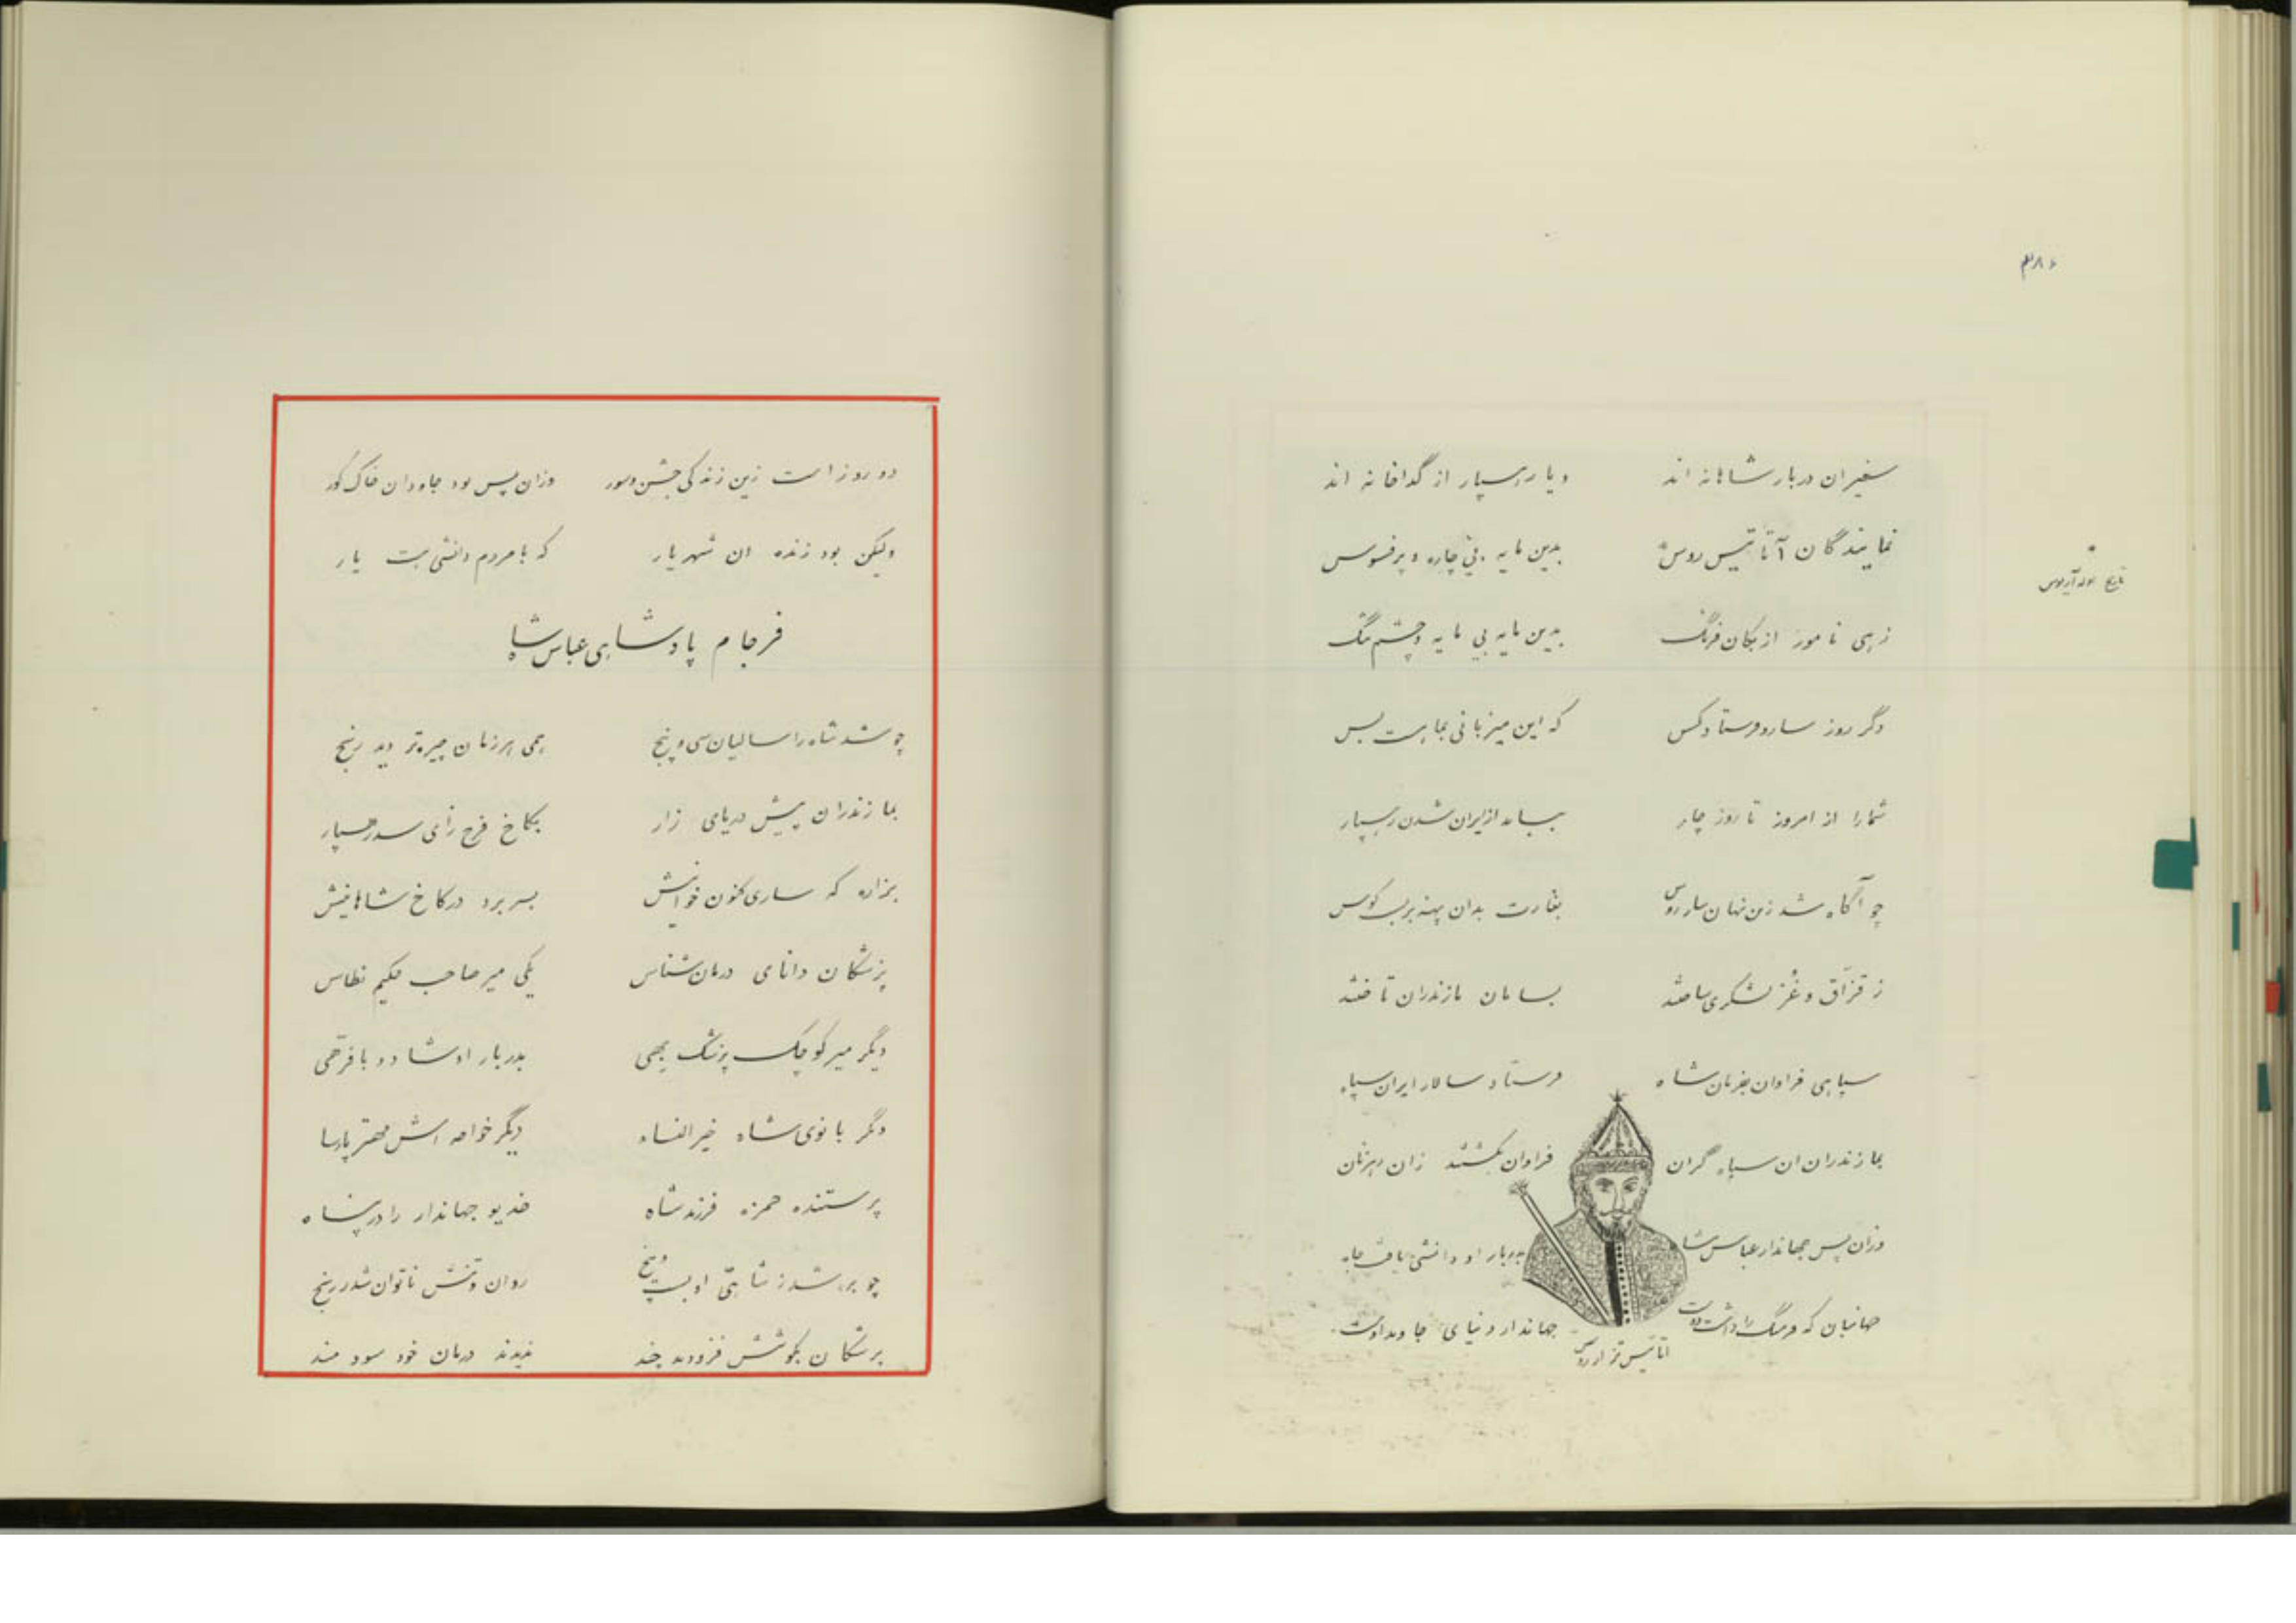 ۳۸۶
سفیران دربار شاهانه اند و یا رهسپار از گداخانه اند
نمایندگان آتاتیس روس بدین مایه بی چاره و پرفسوس
تاریخ
زهی نامور از فرنگ بدین مایه بی مایه و چشم تنگ
دگر روز سارو فرستاد کس که این میزبانی بما هست بس
شما را از امروز تا روز چار بباید از ایران شدن رهسپار
چو آگاه شد زین نهان سار روس بغارت بدان پهنه بربست کوس
ز قزاق و غز لشکری ساختند بسامان مازندران تاختند
سپاهی فراوان بفرمان شاه فرستاد سالار ایران سپاه
بمازندران ان سپاه گران فراوان بکشتند زان رهزنان
وزان پس جهاندار عباس شاه بدربار او دانشی یافت جاه
جهانبان که فرهنگ را داشت دوست جهاندار دنیای جاوید اوست
اتاتیس تزار روس
دو روز است زین زندگی جشن و سور وزان پس بود جاودان خاک گور
ولیکن بود زنده ان شهریار که با مردم دانشی هست یار
فرجام پادشاهی عباس شاه
چو شد شاه را سالیان سی و پنج همی هر زمان چیره تر دید رنج
بمازندران پیش دریای زار بکاخ فرح رأی شد رهسپار
که ساری کنون خوانیش بسر برد در کاخ شاهانیش
پزشکان دانای درمان شناس یکی میر صاحب حکیم نطاس
دیگر میر کوچک پزشک بهی بدربار او شاد و با فرهی
دگر بانوی شاه خیر النساء دیگر خواهر اش مهتر پارسا
پرستنده حمزه فرزند شاه خدیو جهاندار را در پناه
چو بر شد ز شاهی او بیست و پنج روان و تنش ناتوان شد ز رنج
پزشکان بکوشش فزودند چند ندیدند درمان خود سودمند